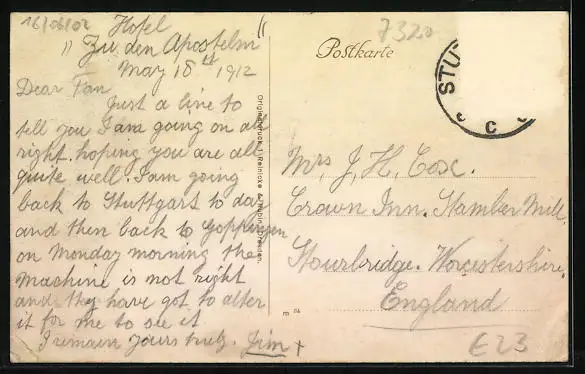 16/06/02
Hotel
" Zu den Aposteln "
May 18th 1912
Dear Pan
Just a line to
tell you I am going on all
right. hoping you are all
quite well. I am going
back to Stuttgart to day
and then back to Goppengen
on Monday morning the
machine is not right
and they have got to alter
it for me to see it
I remain yours truly. Jim +
Originaldruck J. Reinicke & Rubin, Dresden.
m 04
7320
Postkarte
STU
C
Mrs, J, H, Cox.
Crown Inn. Stamber Mill.
Stourbridge. Worcestershire.
England
£23